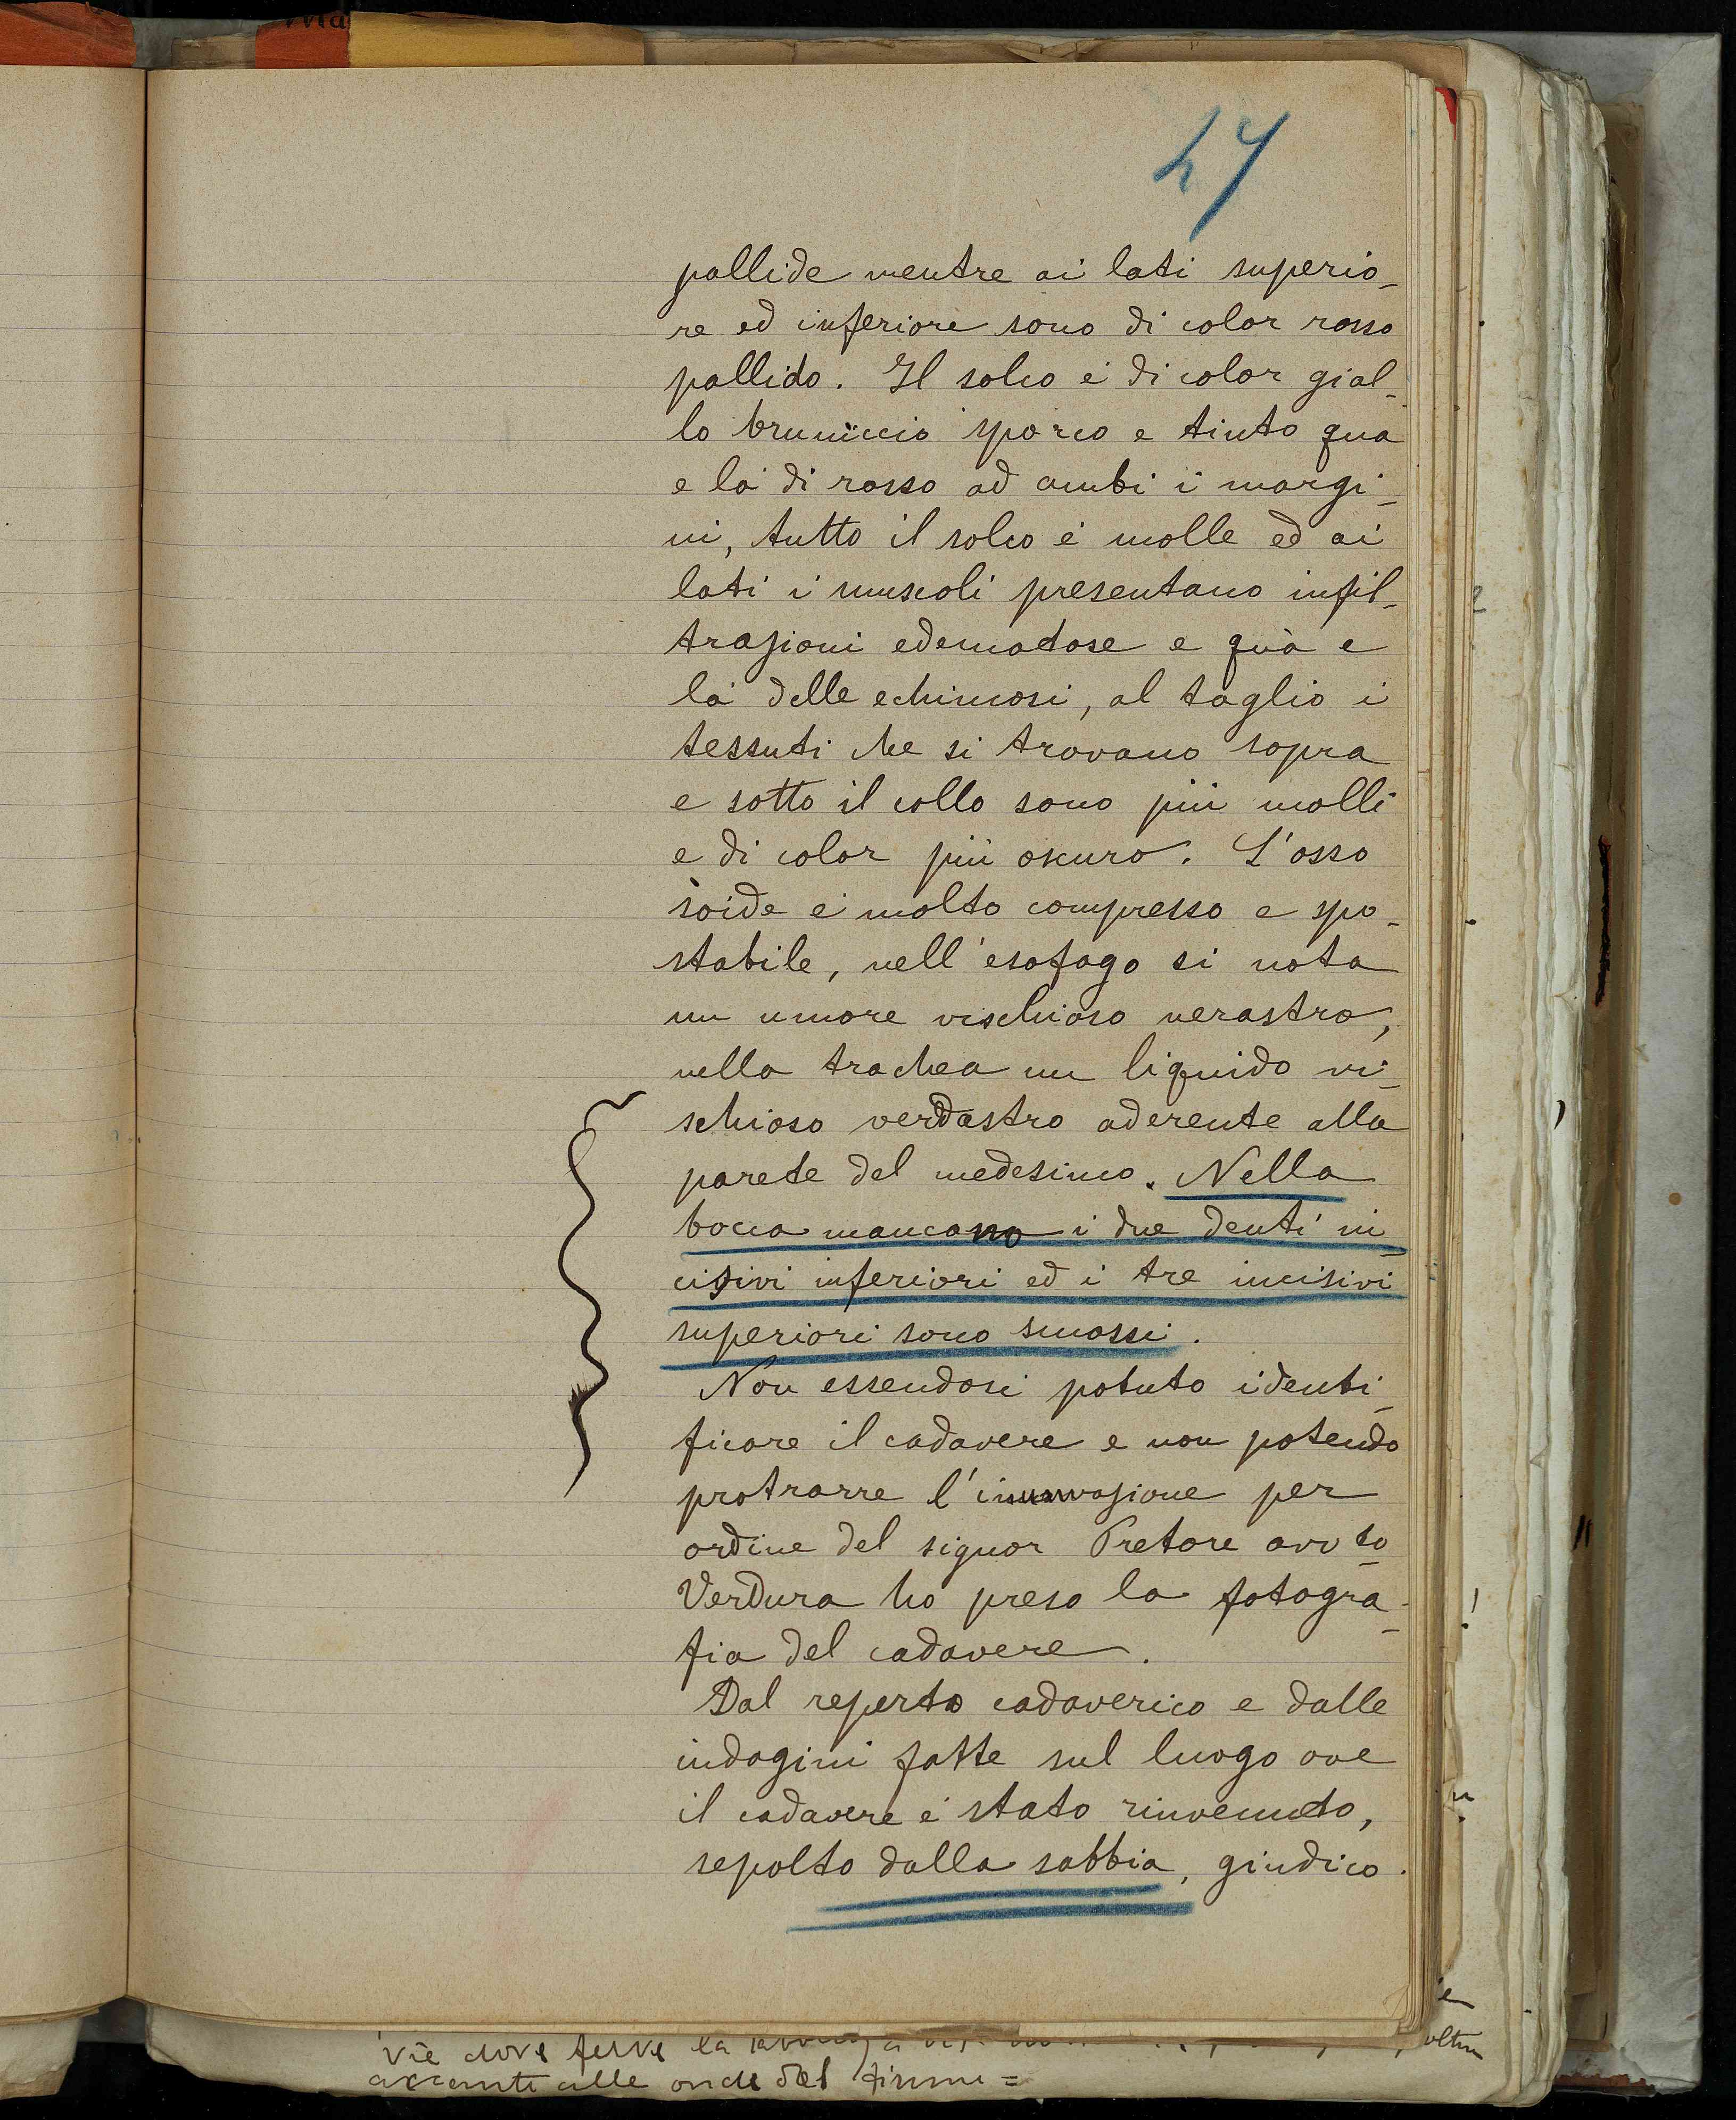 27
pallide mentre ai lati superio_
re ed inferiore sono di color rosso
pallido. Il solco è di color gial_
lo bruniccio sporco e tinto qua
e là di rosso ad ambi i margi_
ni, tutto il solco è molle ed ai
lati i muscoli presentano infil_
trazioni edematose e quà e
là delle echimosi, al taglio i
tessuti che si trovano sopra
e sotto il collo sono più molli
e di color più oscuro. L'osso
ioide è molto compresso e spo_
stabile, nell'esofago si nota
un umore vischioso nerastro,
nella trachea un liquido vi_
schioso verdastro aderente alla
parete del medesimo. Nella
bocca mancano i due denti in_
cisivi inferiori ed i tre incisivi
superiori sono smossi.
Non essendosi potuto identi_
ficare il cadavere e non potendo
protrarre l' per
ordine del signor Pretore avv to
Verdura ho preso la fotogra_
fia del cadavere.
Dal reperto cadaverico e dalle
indagini fatte sul luogo ove
il cadavere è stato rinvenuto,
sepolto dalla sabbia, giudico
vie dove la
alle onde del fiume =
oltre